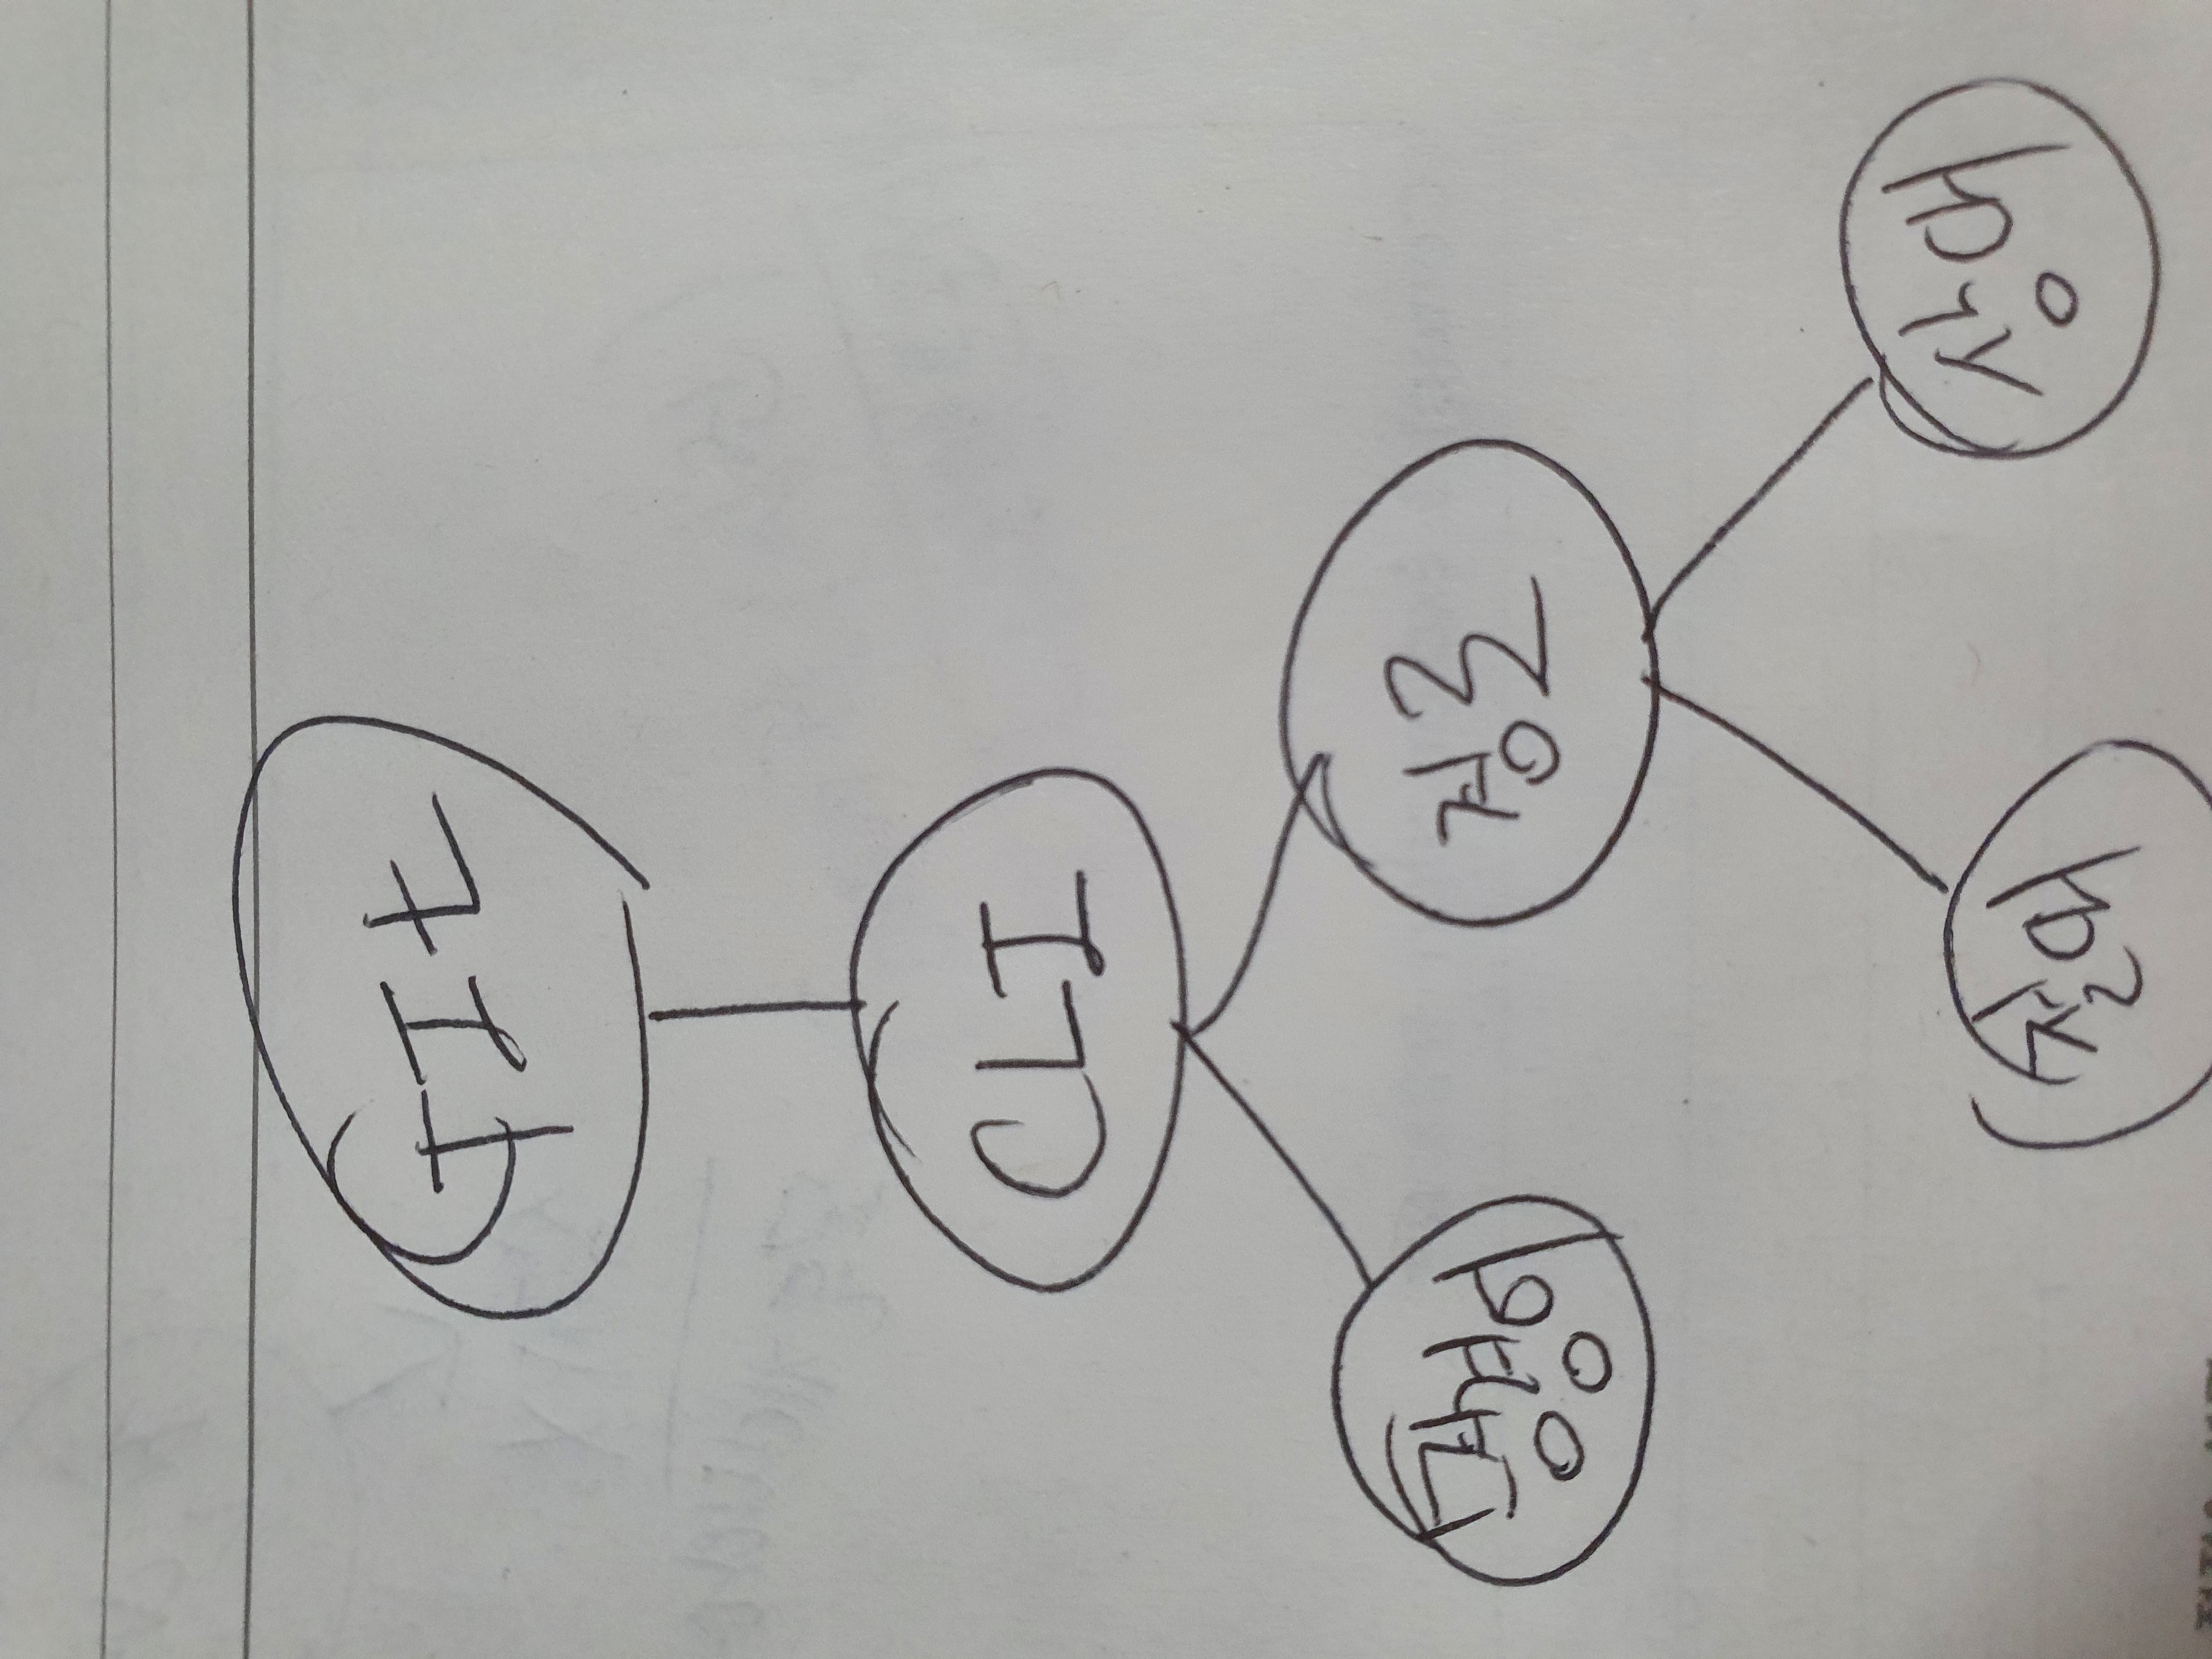 GIt
CLI
명령어
경로
절대
상대